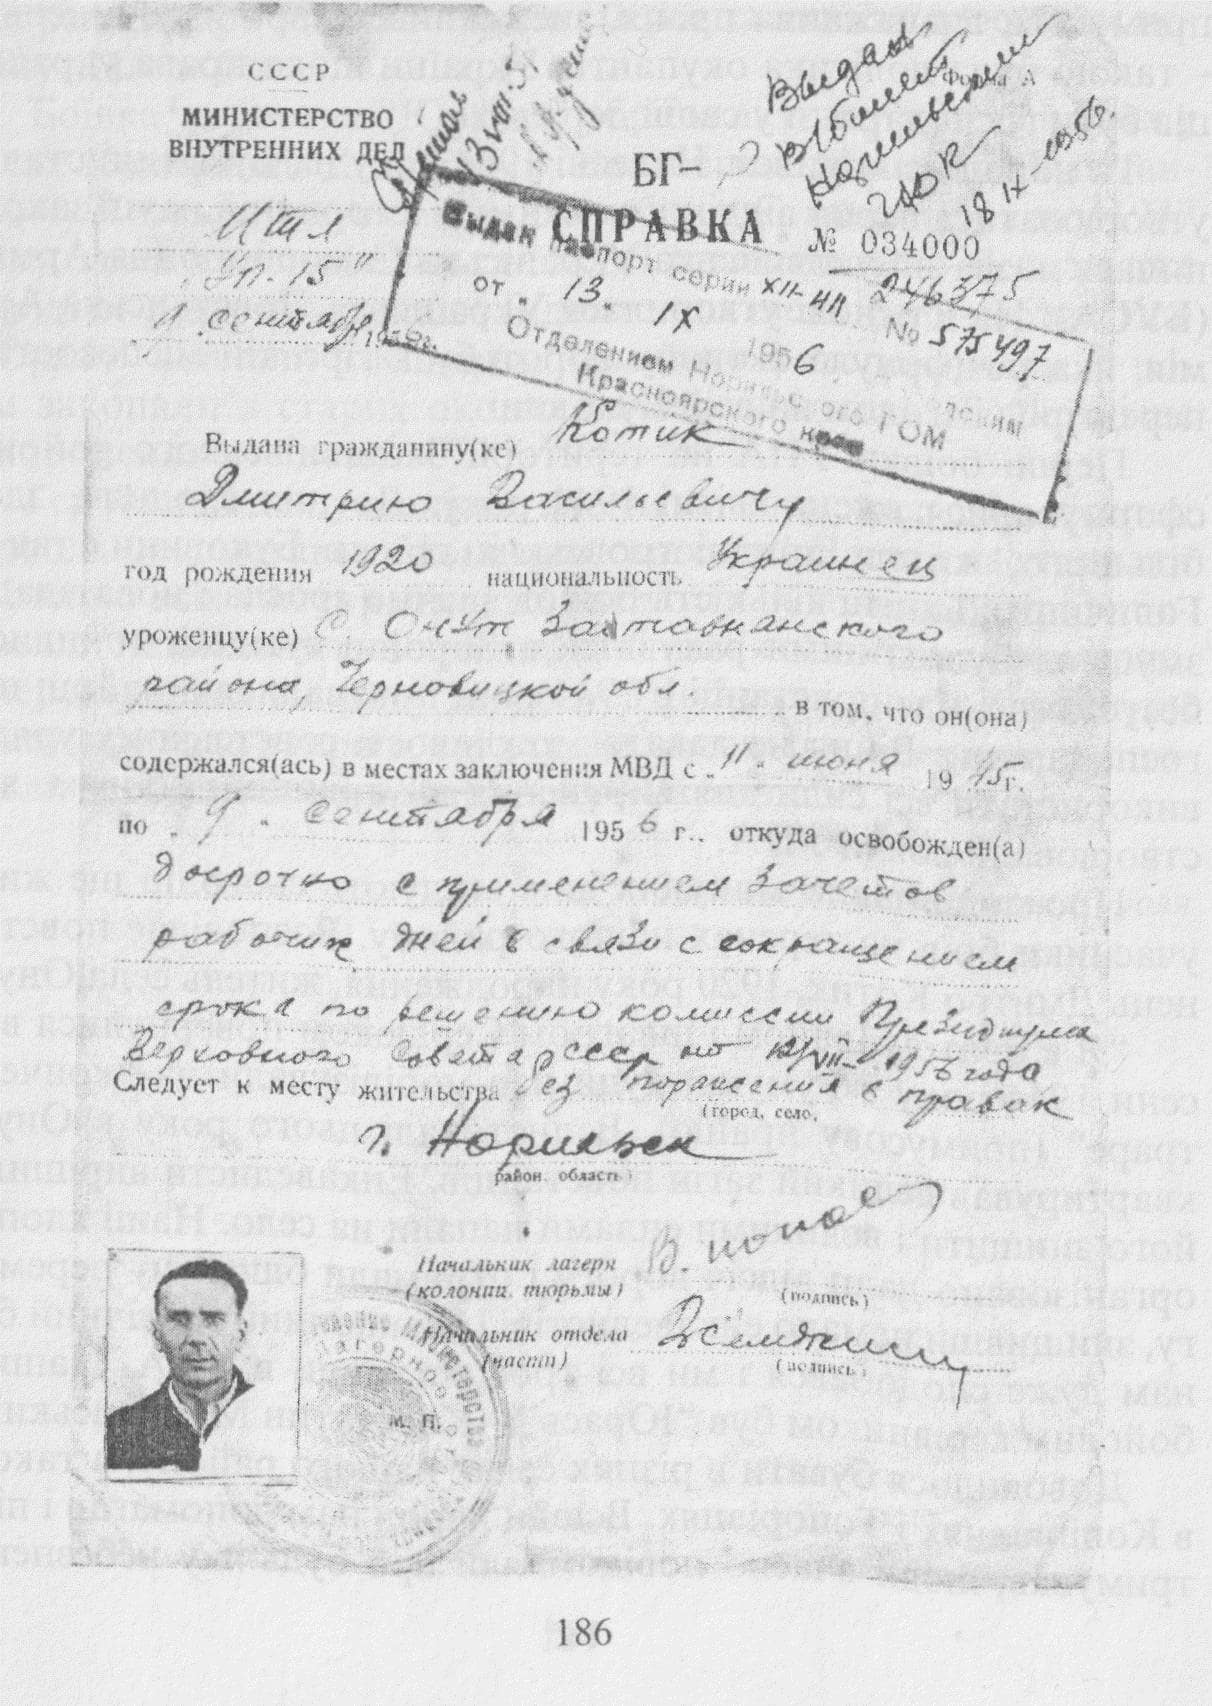 СССР
МИНИСТЕРСТВО
ВНУТРЕННИХ ДЕЛ
Форма А
Выдан
Норильским
18 IX-1956.
БГ-
СПРАВКА
№ 034000
ИТЛ
"Уп.-15"
9 сентября 1956г.
Выдан паспорт серии XII-ИП 246375
№ 575497
от "13" IX 1956
Отделением Норильского ГОМ
Красноярского края
Выдана гражданину(ке) Котик
Дмитрию Васильевичу
год рождения 1920 национальность Украинец
уроженцу(ке) с. Онут Заставнянского
района, Черновицкой обл. в том, что он(она)
содержался(ась) в местах заключения МВД с "11" июня 1945г.
по "9" сентября 1956 г., откуда освобожден(а)
досрочно с применением зачетов
рабочих дней в связи с сокращением
срока по решению комиссии Президиума
Верховного Совета СССР от 1956 года
Следует к месту жительства без поражения в правах
(город, село,
г. Норильск
район, область)
Начальник лагеря
(колонии, тюрьмы)
В. Попов
(подпись)
Начальник отдела
(части)
(подпись)
М. П.
186